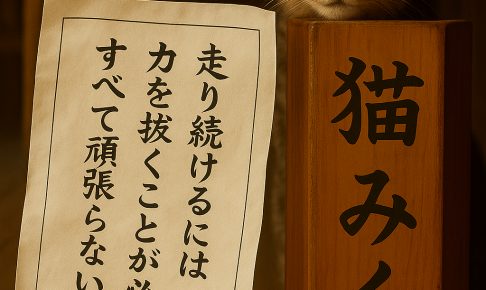 猫み
走り続けるには
力を抜くことが
すべて頑張らない